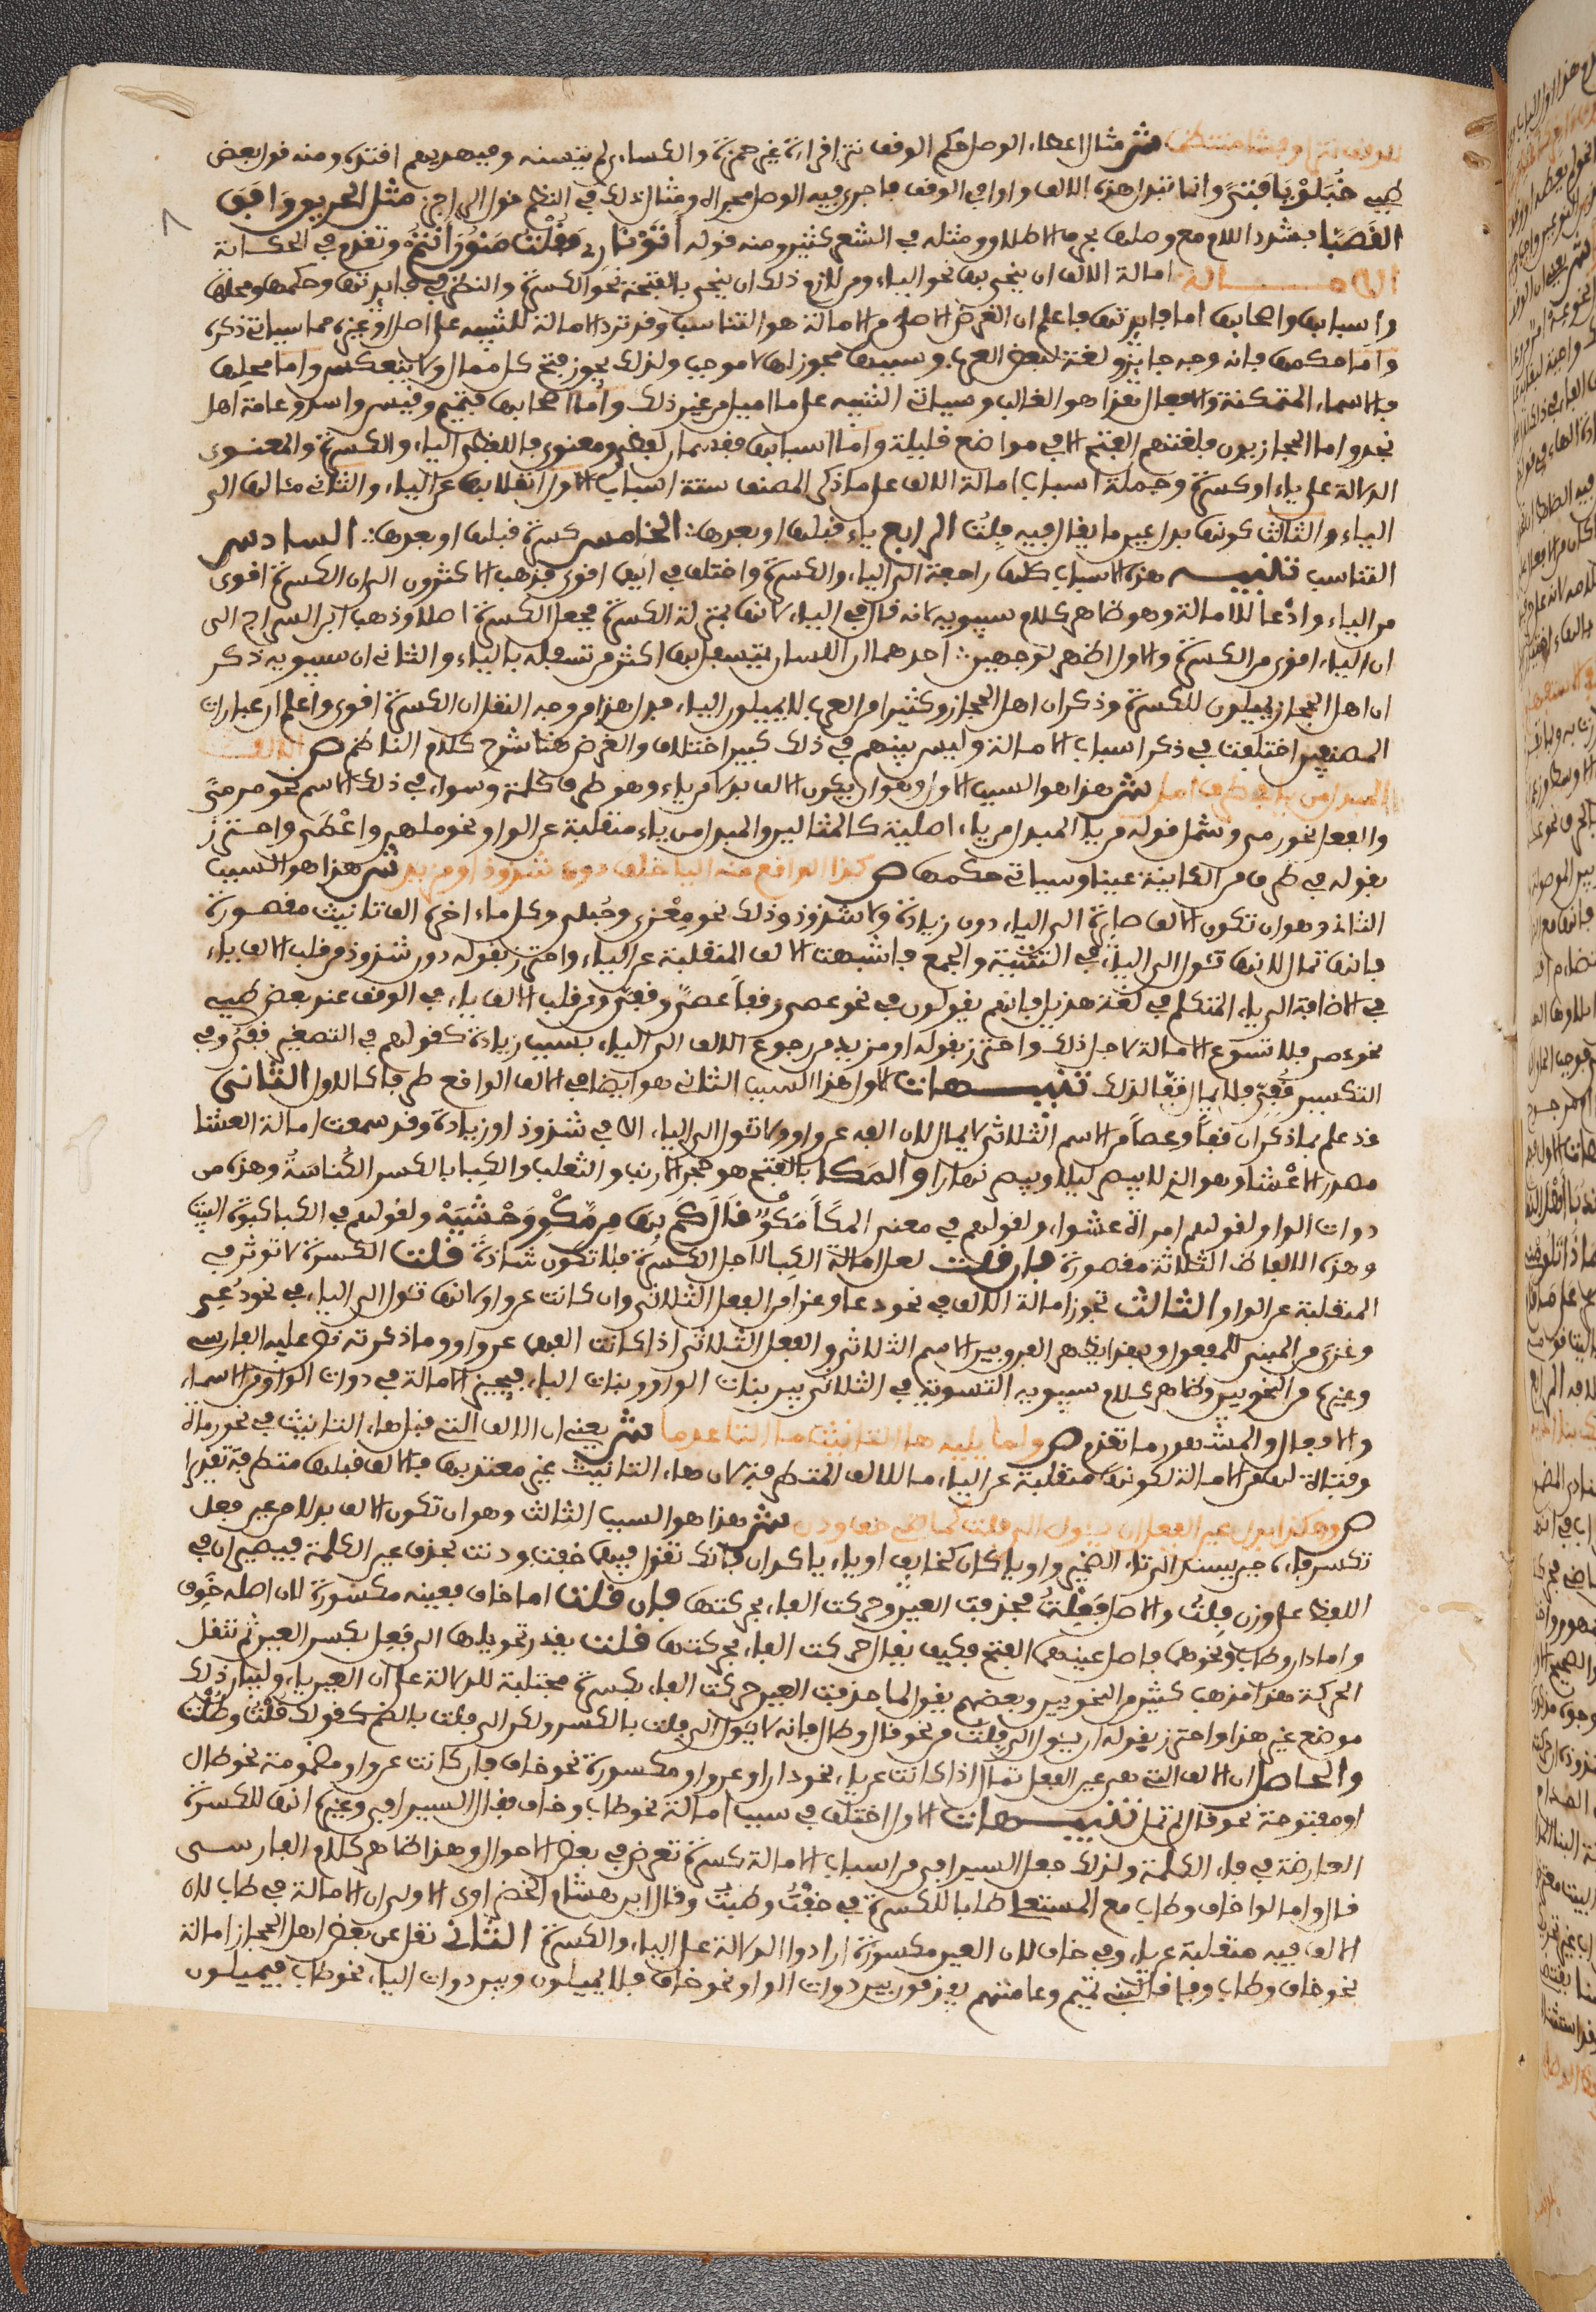 للوقف نثرا وفشا منتظما ش مثال اعطاء الوصل حكم الوقف نثرا قراءة غير حمزة والكساءي لم يتسنه وفبهديهم اقتده ومنه قول بعض
طيء حُبَلَوْ يا فتى وانما تبدل هذه الالف واوا في الوقف فاجرى فيه الوصل مجراه ومثال ذلك في النظم قول الراجز مثل الحريق وافق
القصبا فشدد اللام مع وصلها بحرف الاطلاق ومثله في الشعر كثير ومنه قوله أتوْنا ري فقلت منونَ أنتمُ وتقدم في الحكاية
الامالة امالة الالف ان ينحى بها نحو الياء ومن لازم ذلك ان ينحى بالفتحة نحو الكسرة والنظر في فايدتها وحكمها ومحلها
واسبابها واصحابها اما فايدتها فاعلم ان الغرض الاصلي من الامالة هو التناسب وقد ترد الامالة للتنبيه على اصل او غيره مما سياتي ذكره
واما حكمها فانه وجه جايز ولغة لبعض العرب وسببها مجوز لها لا موجب ولذلك يجوز فتح كل ممال ولا ينعكس واما محلها
فالاسماء المتمكنة والافعال هذا هو الغالب وسياتي التنبيه على ما اميل من غير ذلك واما اصحابها فتميم وقيس واسد وعامة اهل
نجد واما الحجازيون فلغتهم الفتح الا في مواضع قليلة واما اسبابها فقسمان لفظي ومعنوي فاللفظي الياء والكسرة والمعنوي
الدلالة على ياء او كسرة وجملة اسباب امالة الالف على ما ذكر المصنف ستة اسباب الاول انقلابها عن الياء والثاني مئالها الى
الياء والثالث كونها بدل عين ما يقال فيه فِلتُ الرابع ياء قبلها او بعدها الخامس كسرة قبلها او بعدها السادس
التناسب تنبيه هذه الاسباب كلها راجعة الى الياء والكسرة واختلف في ايها اقوى فذهب الاكثرون الى ان الكسرة اقوى
من الياء وادعا للامالة وهو ظاهر كلام سيبويه لانه قال في الياء لانها بمنزلة الكسرة فجعل الكسرة اصلا وذهب ابن السراج الى
ان الياء اقوى من الكسرة والاول اظهر لوجهين احدهما ان اللسان يتسفل بها اكثر من تسفله بالياء والثاني ان سيبويه ذكر
ان اهل الحجاز يميلون للكسرة وذكر ان اهل الحجاز وكثيرا من العرب لا يميلون للياء فدل هذا من وجه النقل ان الكسرة اقوى واعلم ان عبارات
المصنفين اختلفت في ذكر اسباب الامالة وليس بينهم في ذلك كبير اختلاف والغرض هنا شرح كلام الناظم ص الالف
المبدل من يا في طرف امل ش هذا هو السبب الاول وهو ان يكون الالف بدلا من ياء وهو طرف كلمة وسواء في ذلك الاسم نحو مرمىً
والفعل نحو رمى وشمل قوله من يا المبدل من ياء اصلية كالمثالين والمبدل من ياء منقلبة عن الواو نحو ملهى واعْطى واحترز
بقوله في طرف من الكاينة عينا وسياتي حكمها ص كذا الواقع منه اليا خلف دون شذوذ او مزيد ش هذا هو السبب
الثاني وهو ان تكون الالف صايرة الى الياء دون زيادة ولا شذوذ وذلك نحو مِعْزى وحُبلى وكل ماء اخره الف تانيث مقصورة
فانها تمال لانها تئول الى الياء في التثنية والجمع فاشبهت الالف المنقلبة عن الياء واحترز بقوله دون شذوذ من قلب الالف ياء
في الاضافة الى ياء المتكلم في لغة هذيل فانهم يقولون في نحو عصى وقفاً عصيَّ وقفيَّ ومن قلب الالف ياء في الوقف عند بعض طيء
نحو عصى فلا تسوغ الامالة لاجل ذلك واحترز بقوله او مزيد من رجوع الالف الى الياء بسبب زيادة كقولهم في التصغير قُفَيٌّ وفي
التكسير قُفِيّ فلا يمال قفا لذلك تنبيهات الاول هذا السبب الثاني هو ايضا في الالف الواقع طرفا كالاول الثاني
قد علم بما ذكر ان قفاً وعصاً من الاسم الثلاثي لا يمال لان الفه عن واو ولا تئول الى الياء الا في شذوذ او زيادة وقد سمعت امالة العشا
مصدر الاعْشا وهو الذي لا يبصر ليلا ويبصر نهارا والمَكا بالفتح هو جحر الارنب والثعلب والكِبا بالكسر الكُناسة وهذه من
ذوات الواو لقولهم امراة عشواء ولقولهم في معنى المكاً مَكْوٌ قال كم بها من مكْوِ وحْشيَّهْ ولقولهم في الكبا كبوت البيت
وهذه الالفاظ الثلاثة مقصورة فان قلت لعل امالة الكِبا لاجل الكسرة فلا تكون شاذة قلت الكسرة لا توثر في
المنقلبة عن الواو الثالث تجوز امالة الالف في نحو دعا وغزا من الفعل الثلاثي وان كانت عن واو لانها تئول الى الياء في نحو دُعِي
وغُزي من المبني للمفعول وبهذا يظهر الفرق بين الاسم الثلاثي والفعل الثلاثي اذا كانت الفهما عن واو وما ذكرته نص عليه الفارسي
وغيره من النحويين وظاهر كلام سيبويه التسوية في الثلاثي بين بنات الواو وبنات الياء فيجيز الامالة في ذوات الواو من الاسماء
والافعال والمشهور ما تقدم ص ولما يليه ها التانيث ما الها عدما ش يعني ان للالف التي قبل هاء التانيث في نحو رماة
وفتاة من الامالة لكونها منقلبة عن الياء ما للالف المتطرفة لان هاء التانيث غير معتد بها فالالف قبلها متطرفة تقديرا
ص وهكذا بدل عين الفعل ان يئول الى فلت كماضي خف ودن ش هذا هو السبب الثالث وهو ان تكون الالف بدلا من عين فعل
تكسر فاءه حين يسند الى تاء الضمير واويا كان كخاف او ياءيا كدان فانك تقول فيهما خفت ودنت بحذف عين الكلمة فيصيران في
اللفظ على وزن فِلتُ والاصل فَعِلْتُ فحذفت العين وحركت الفاء بحركتها فان قلت اما خاف فعينه مكسورة لان اصله خَوِف
واما دان وطاب ونحوهما فاصل عينهما الفتح فكيف يقال حركت الفاء بحركتها قلت يقدر تحويلها الى فَعِل بكسر العين ثم تنقل
الحركة هذا مذهب كثير من النحويين وبعضهم يقول لما حذفت العين حركت الفاء بكسرة مجتلبة للدلالة على ان العين ياء ولبيان ذلك
موضع غير هذا واحترز بقوله ان يئول الى فِلتُ من نحو قال وطال فانه لا يئول الى فِلت بالكسر ولكن الى فُلت بالضم كقولك قُلْتُ وطُلْتُ
والحاصل ان الالف التي هي عين الفعل تمال اذا كانت عن ياء نحو دان او عن واو مكسورة نحو خاف فان كانت عن واو مضمومة نحو طال
او مفتوحة نحو قال لم تمل تنبيهات الاول اختلف في سبب امالة نحو طاب وخاف فقال السيرافي وغيره انها للكسرة
العارضة في فاء الكلمة ولذلك جعل السيرافي من اسباب الامالة كسرة تعرض في بعض الاحوال وهذا ظاهر كلام الفارسي
قال وامالوا خاف وطاب مع المستعلي طلبا للكسرة في خِفْتُ وطِبْتُ وقال ابن هشام الخضراوي الاولى ان الامالة في طاب لان
الالف فيه منقلبة عن ياء وفي خاف لان العين مكسورة ارادوا الدلالة على الياء والكسرة الثاني نقل عن بعض اهل الحجاز امالة
نحو خاف وطاب وفاقا لبني تميم وعامتهم يفرقون بين ذوات الواو نحو خاف فلا يميلون وبين ذوات الياء نحو طاب فيميلون